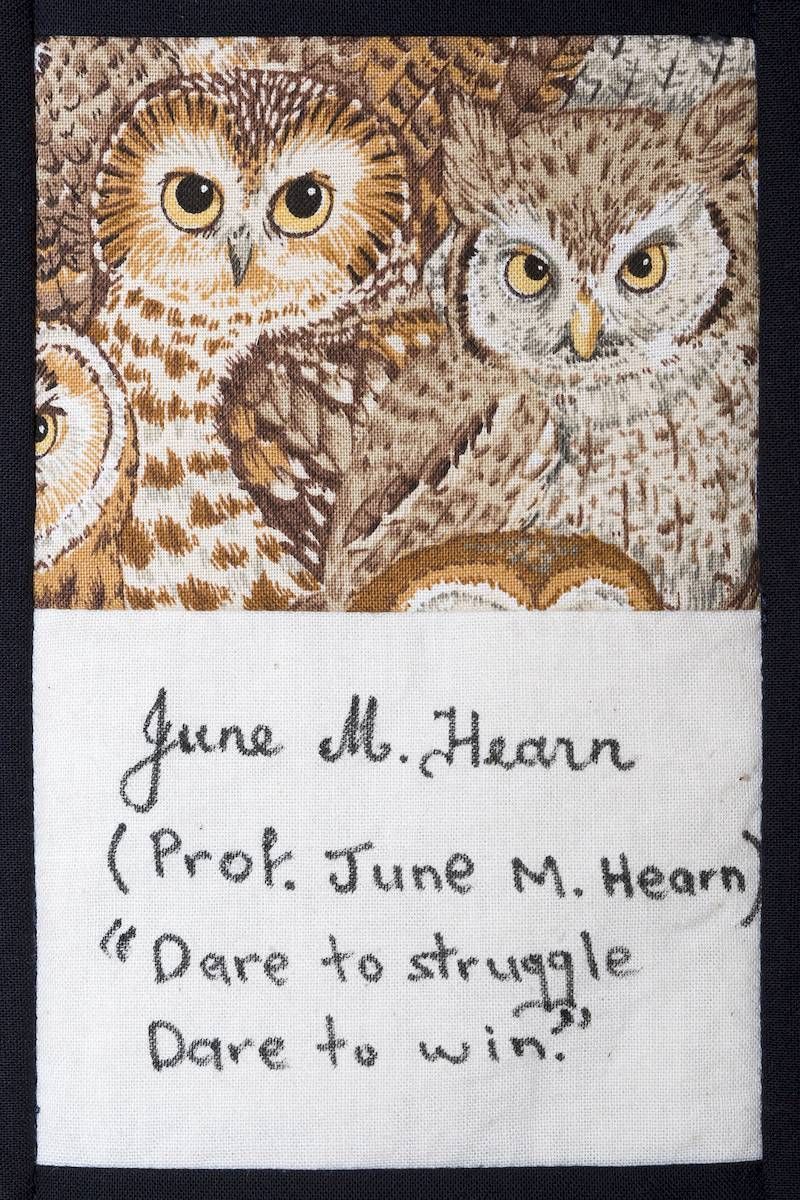 June M. Hearn
(Prof. June M. Hearn)
“Dare to struggle
Dare to win.”